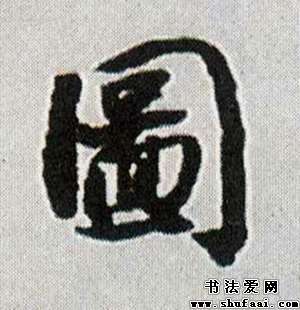 圖
书法爱网
www.shufaai.com